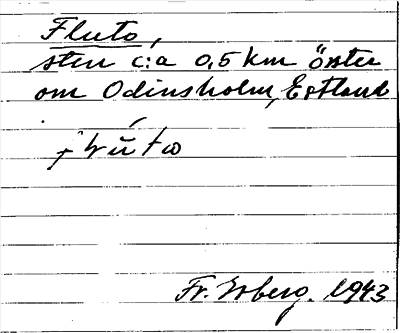 Fluto,
sten c:a 0,5 km öster
om Odinsholm, Estland
Fr. Isberg. 1943